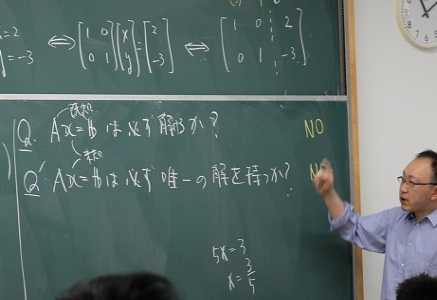 x=2
y=-3
⇔ [1 0 0 1][x y]=[2 -3] ⇔ (1 0 2 0 1 -3)
既知
Q. Ax=b は必ず解けるか? NO
未知
Q' Ax=b は必ず唯一の解を持つか?
5x=3
x=3/5